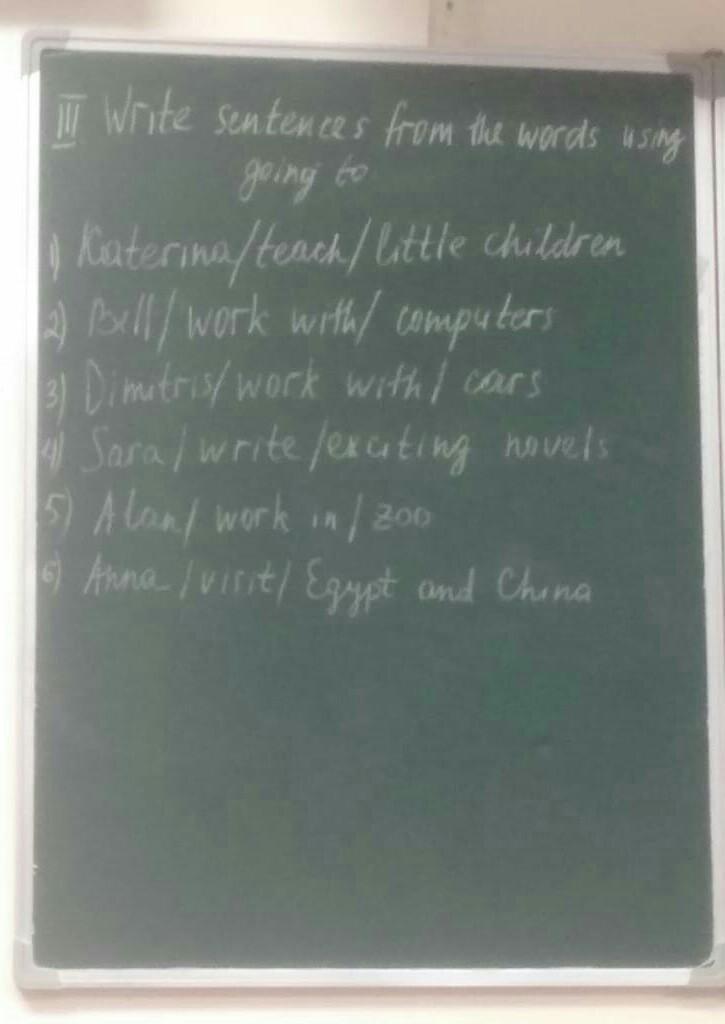 III Write sentences from the words using
going to
1) Katerina/teach/little children
2) Bill/work with/computers
3) Dimitris/work with/cars
4) Sara/write/exciting novels
5) Alan/work in/zoo
6) Anna/visit/Egypt and China